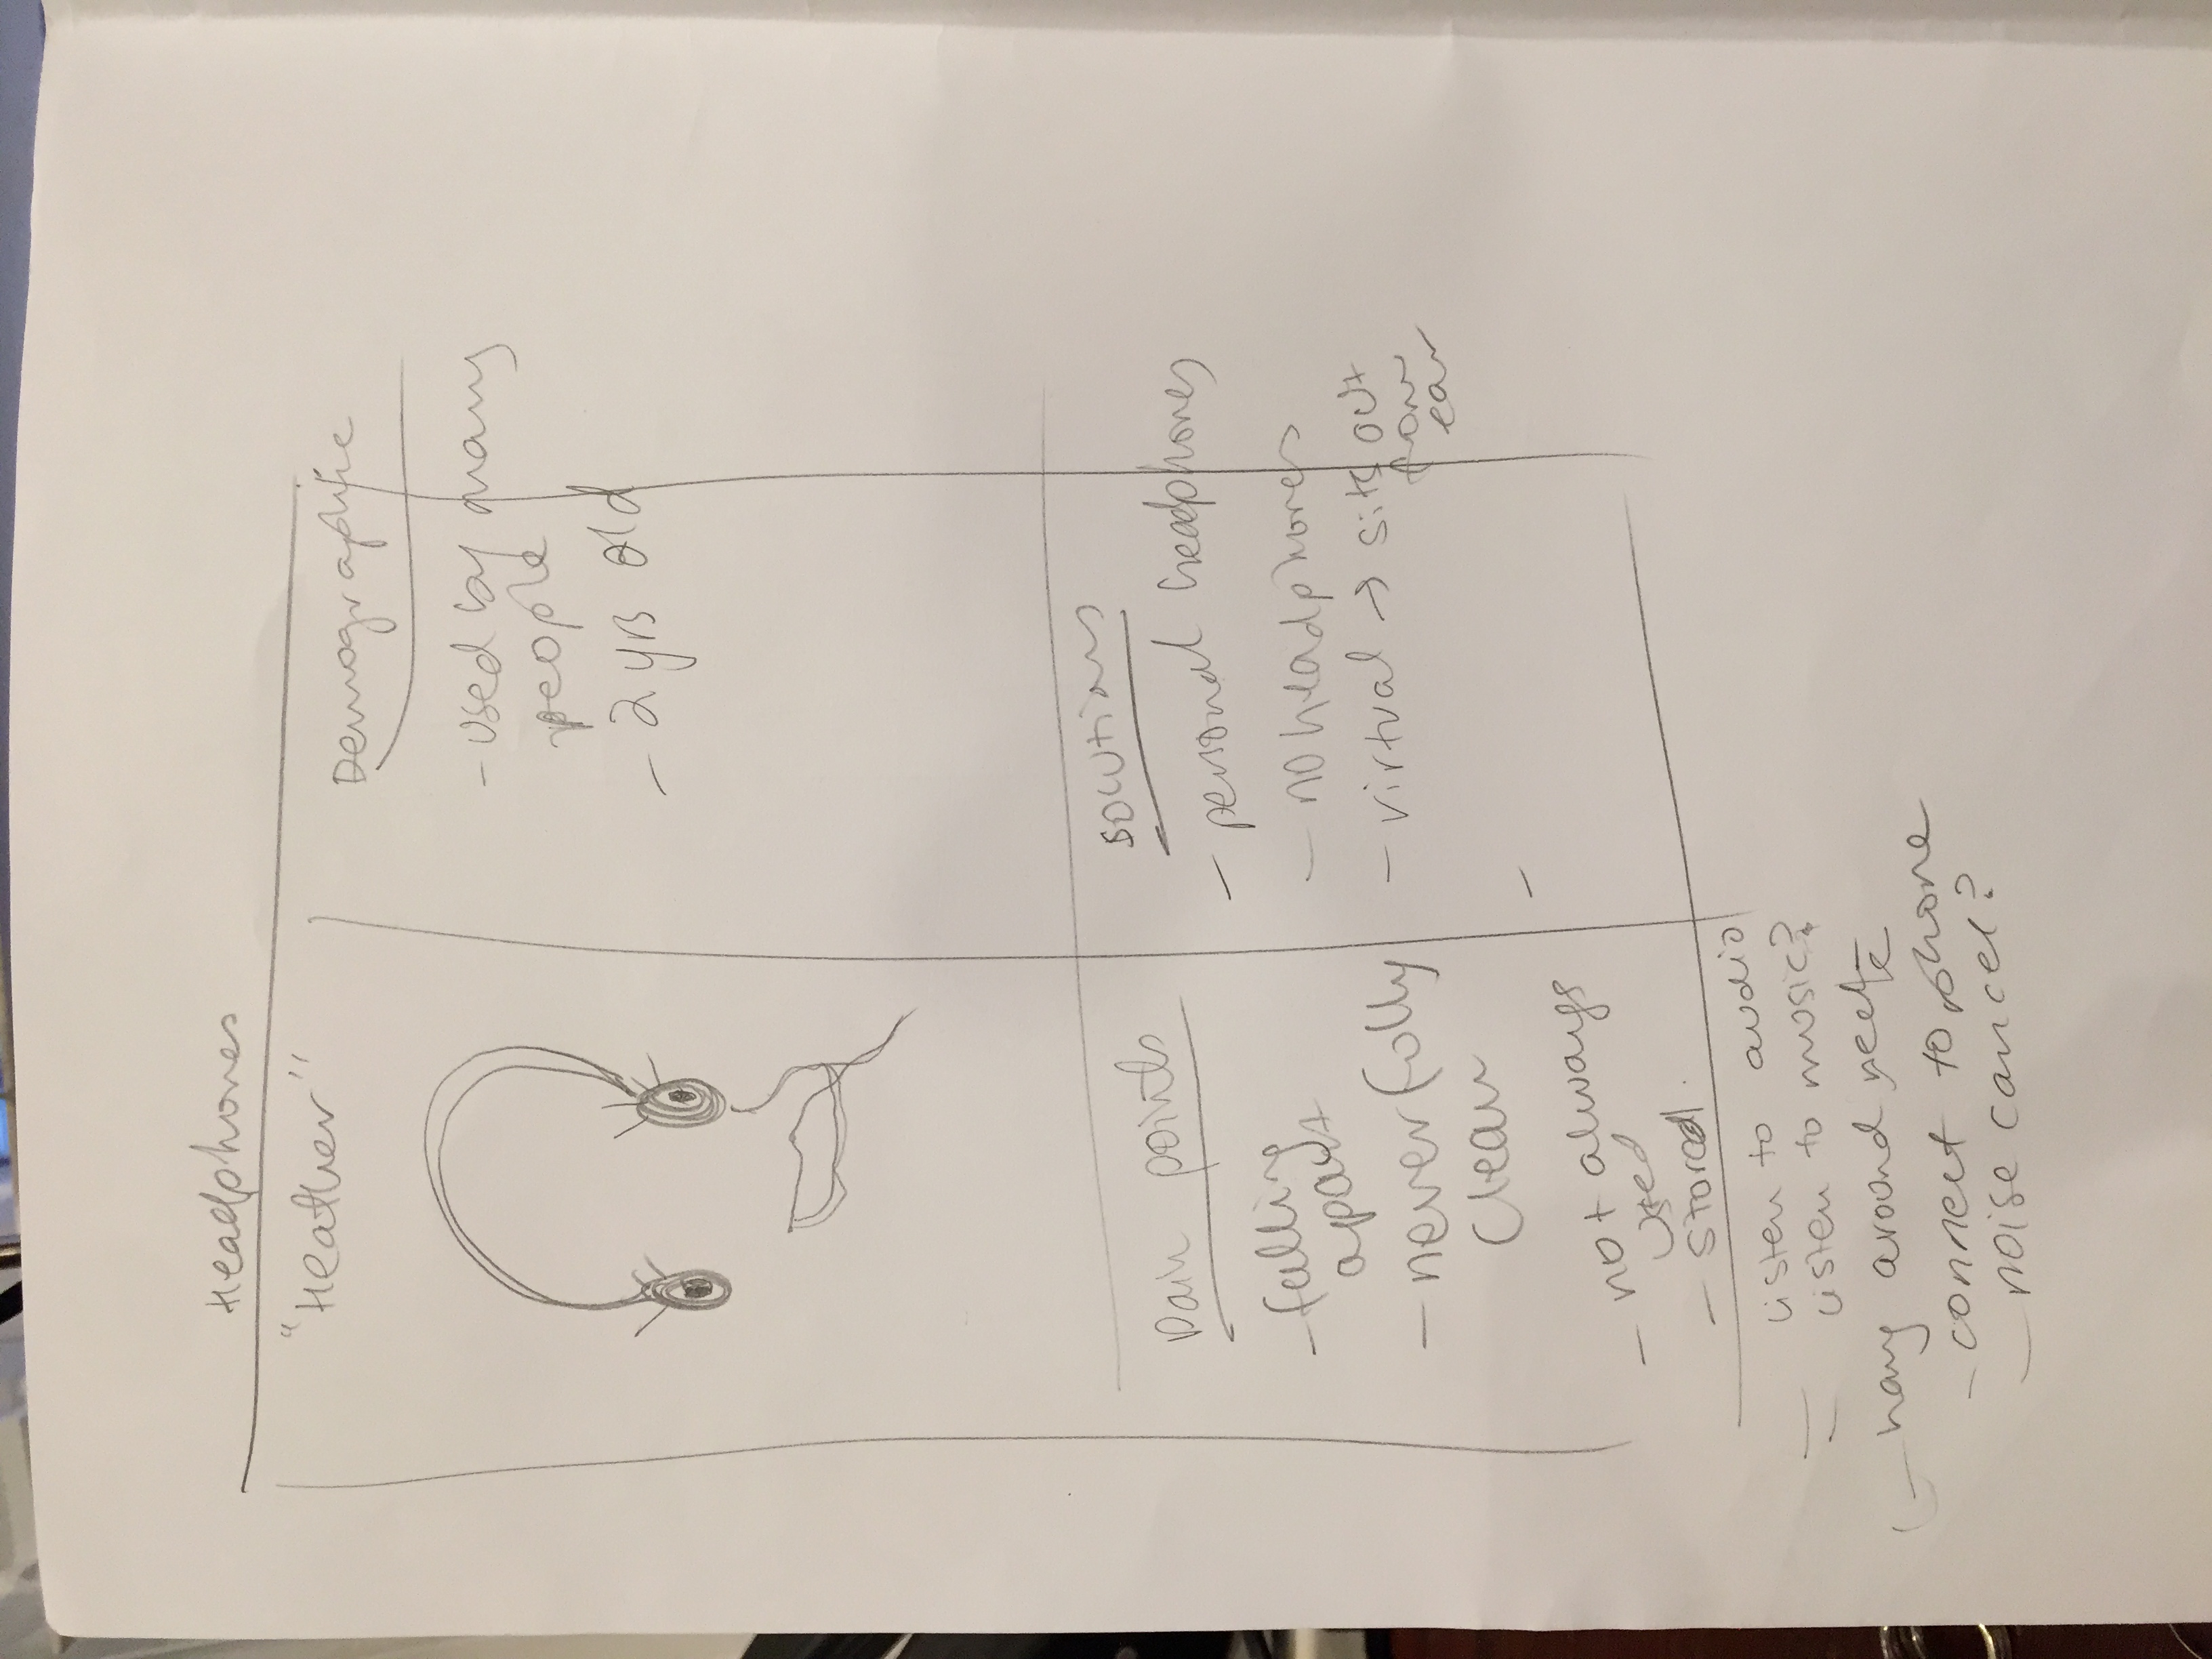 Headphones
"Heather"
Demographic
- used by many
people
- 2 yrs old
Pain points
- falling
apart
- never fully
clean
- not always
used
- stored.
Solutions
- personal headphones
- no headphones
- virtual → sits out
from
ear
-
- listen to audio
- listen to music?
- hang around neck
- connect to phone
- noise cancel?